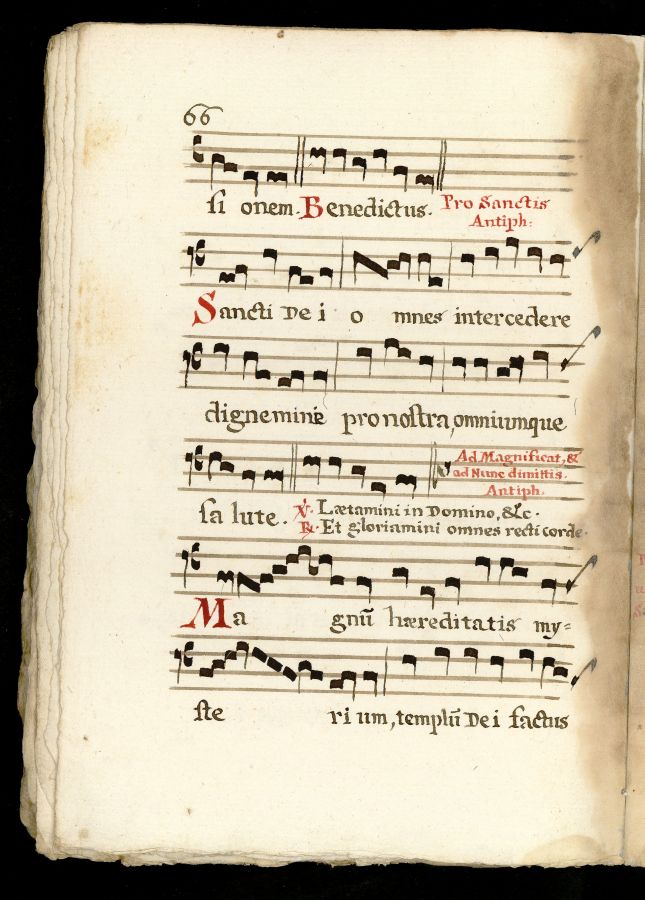 66
si onem. Benedictus. Pro Sanctis
Antiph:
Sancti De i o mnes intercedere
dignemini pro nostra, omniumque
Ad Magnificat, &
ad Nunc dimittis.
Antiph.
sa lute. ℣. Lætamini in Domino, &c.
℟. Et gloriamini omnes recti corde.
Ma gnũ hæreditatis my=
ste ri um, templũ De i factus